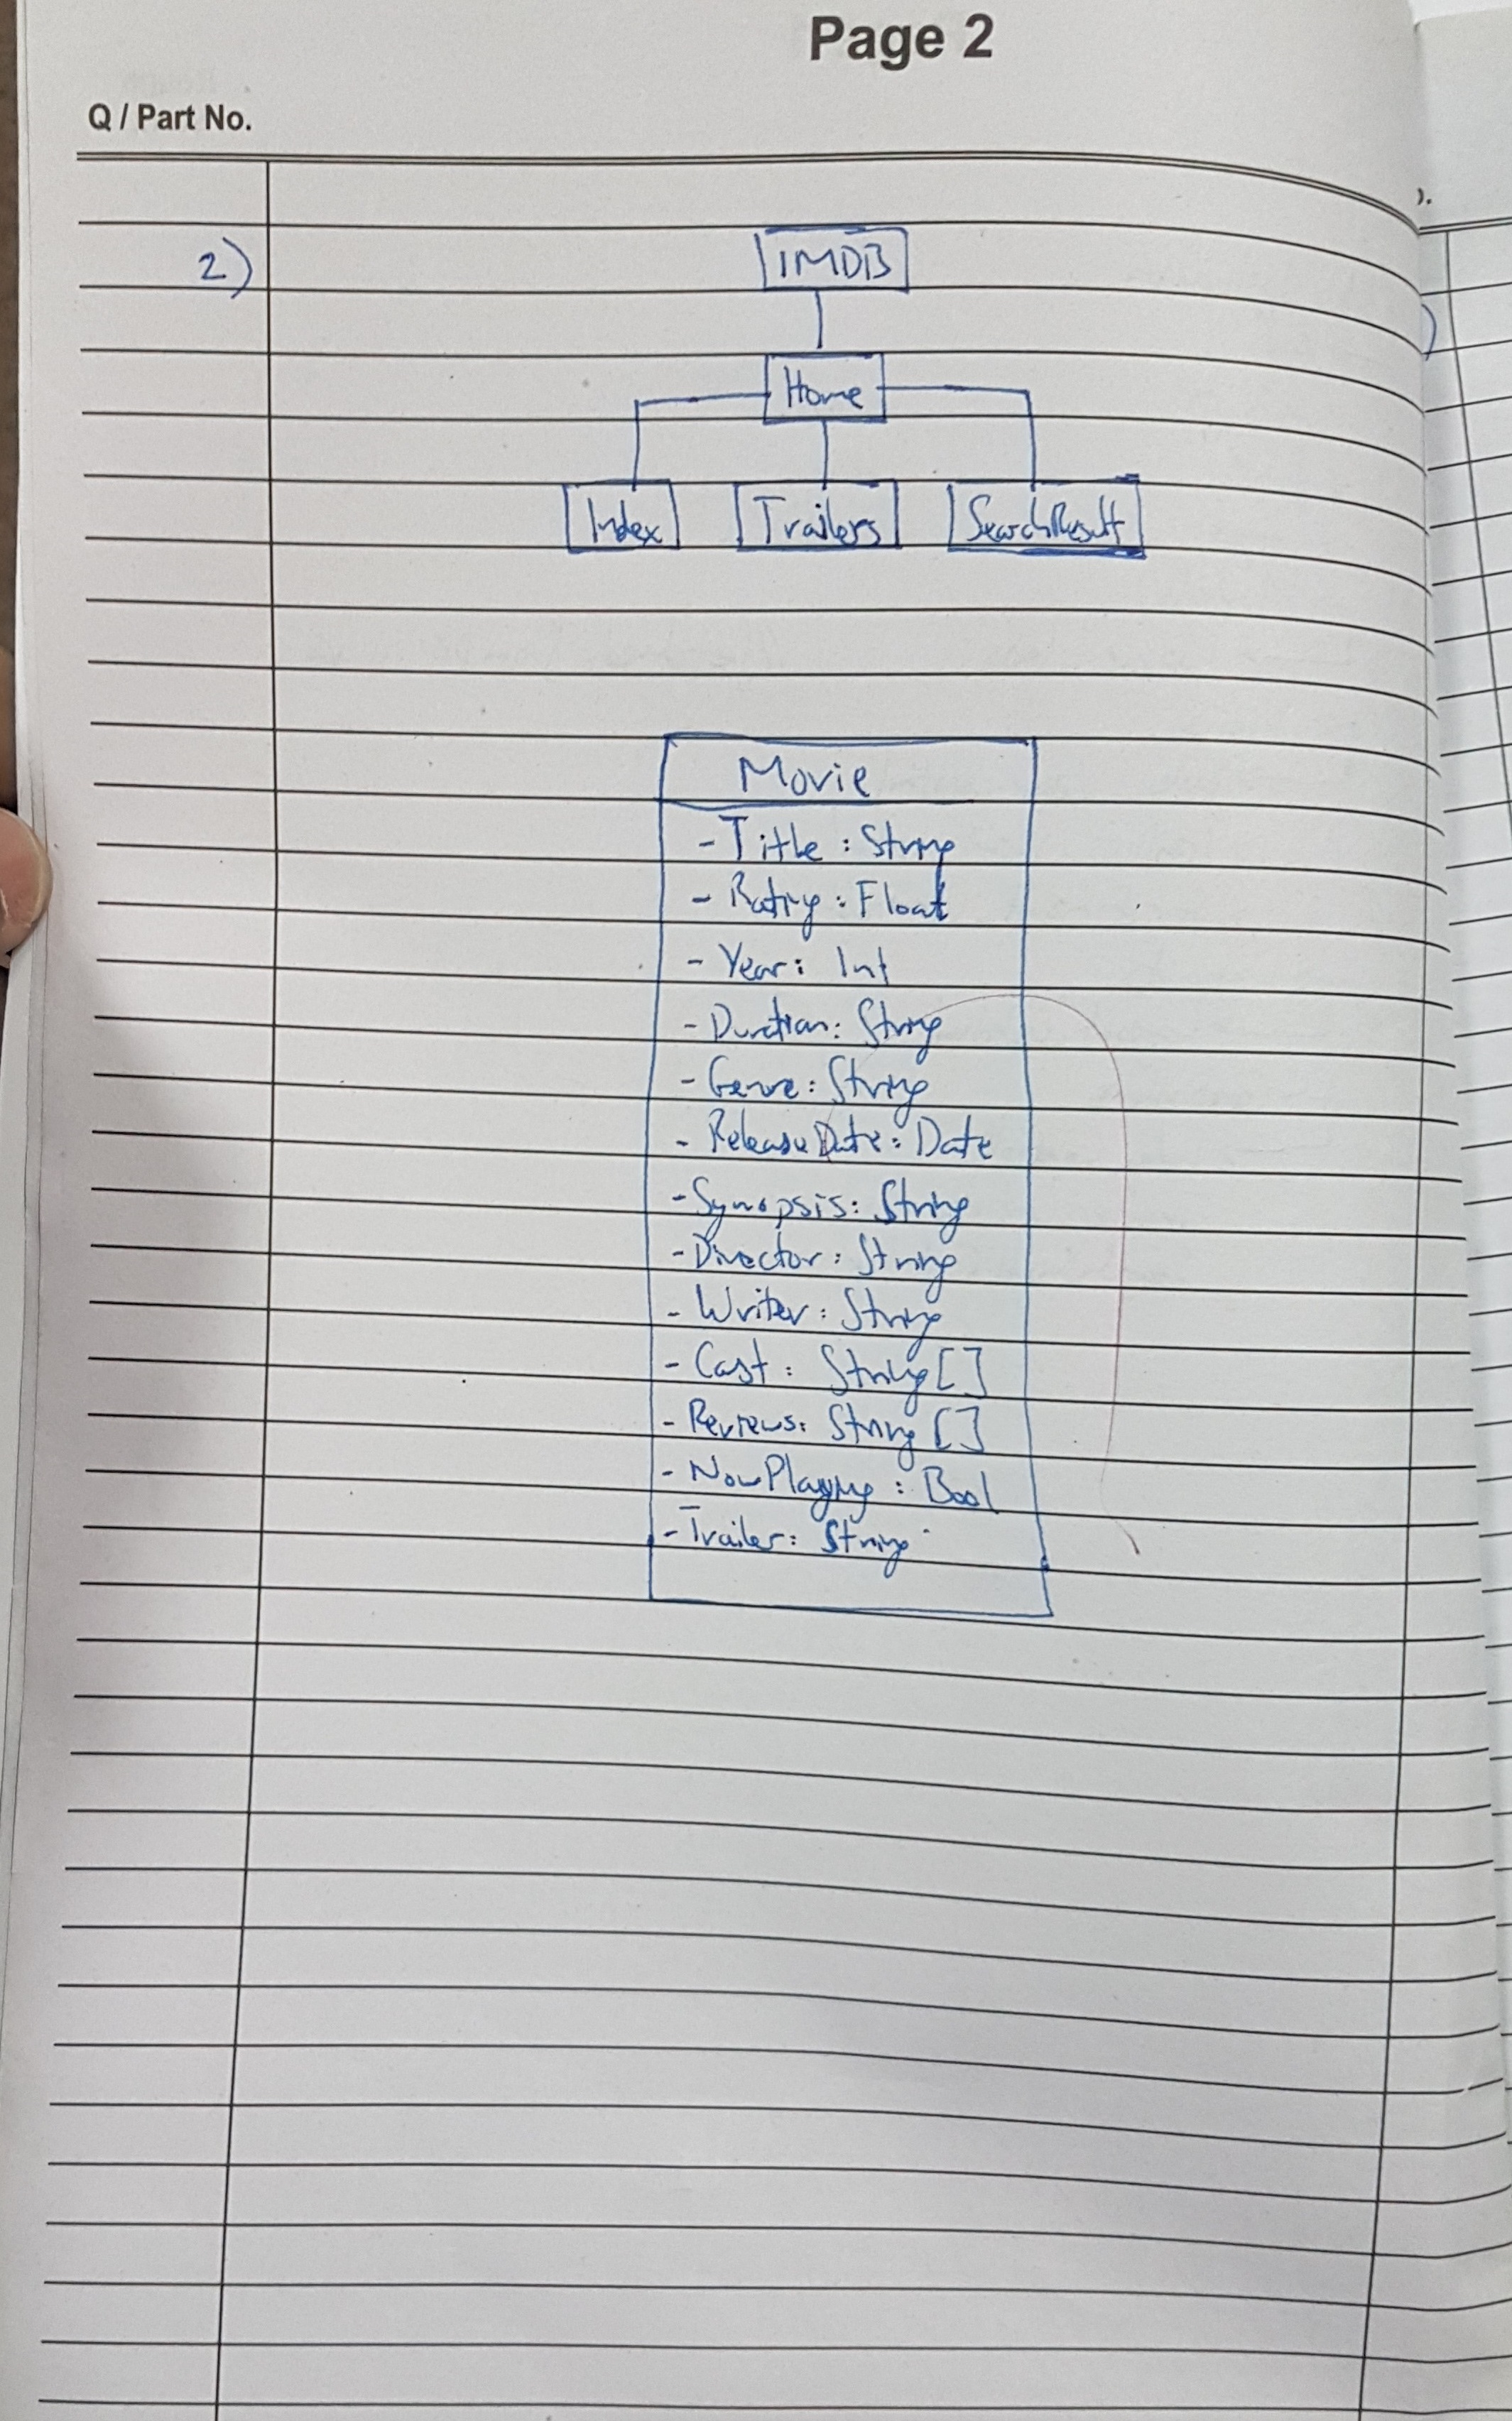 Page 2
Q / Part No.
2)
IMDB
Home
Index Trailers SearchResult
Movie
- Title : String
- Rating : Float
- Year : Int
- Duration : String
- Genre : String
- ReleaseDate : Date
- Synopsis : String
- Director : String
- Writer : String
- Cast : String []
- Reviews : String []
- NowPlaying : Bool
- Trailer : String